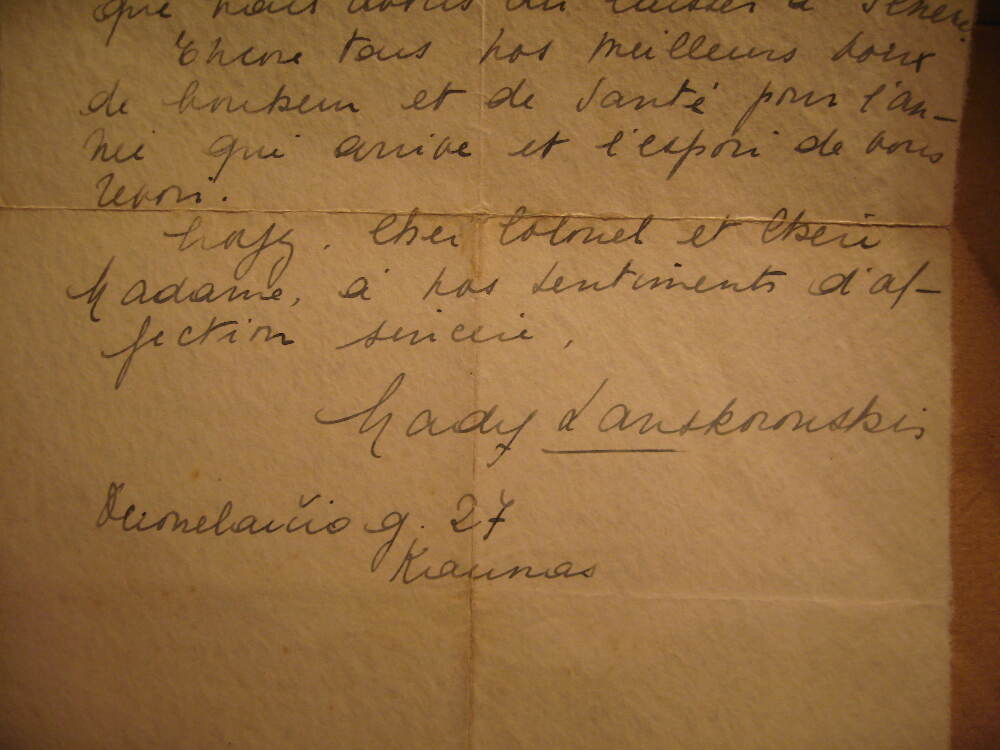 que nous avons dû laisser à
Encore tous nos meilleurs voeux
de bonheur et de santé pour l'an-
née qui arrive et l'espoir de vous
revoir.
Croyez, Cher Colonel et Chère
Madame, à nos sentiments d'af-
fection sincère,
Mady Lanskoronskis
Duonelaičio g. 27
Kaunas